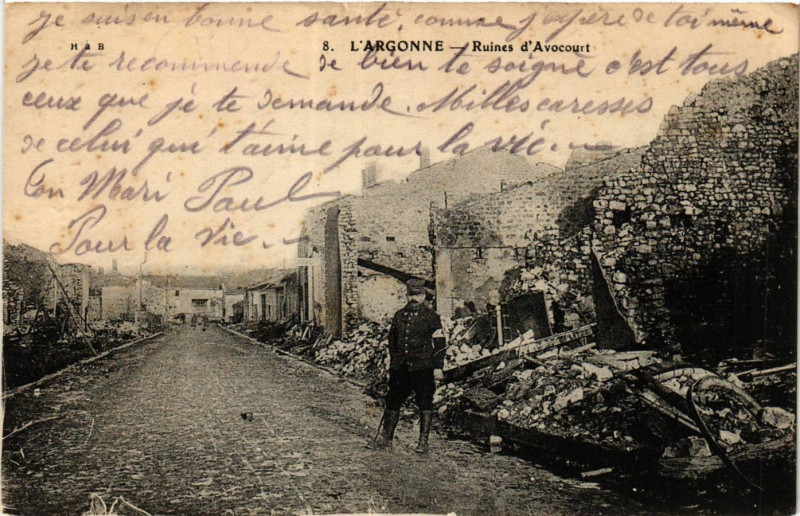 je suis en bonne santé, comme j'espère de toi même
H & B
8. L'ARGONNE — Ruines d'Avocourt
je te recommende de bien te soigné c'est tous
ceux que je te demande. Milles caresses
de celui qui t'aime pour la vie.
Ton Mari Paul
Pour la vie.